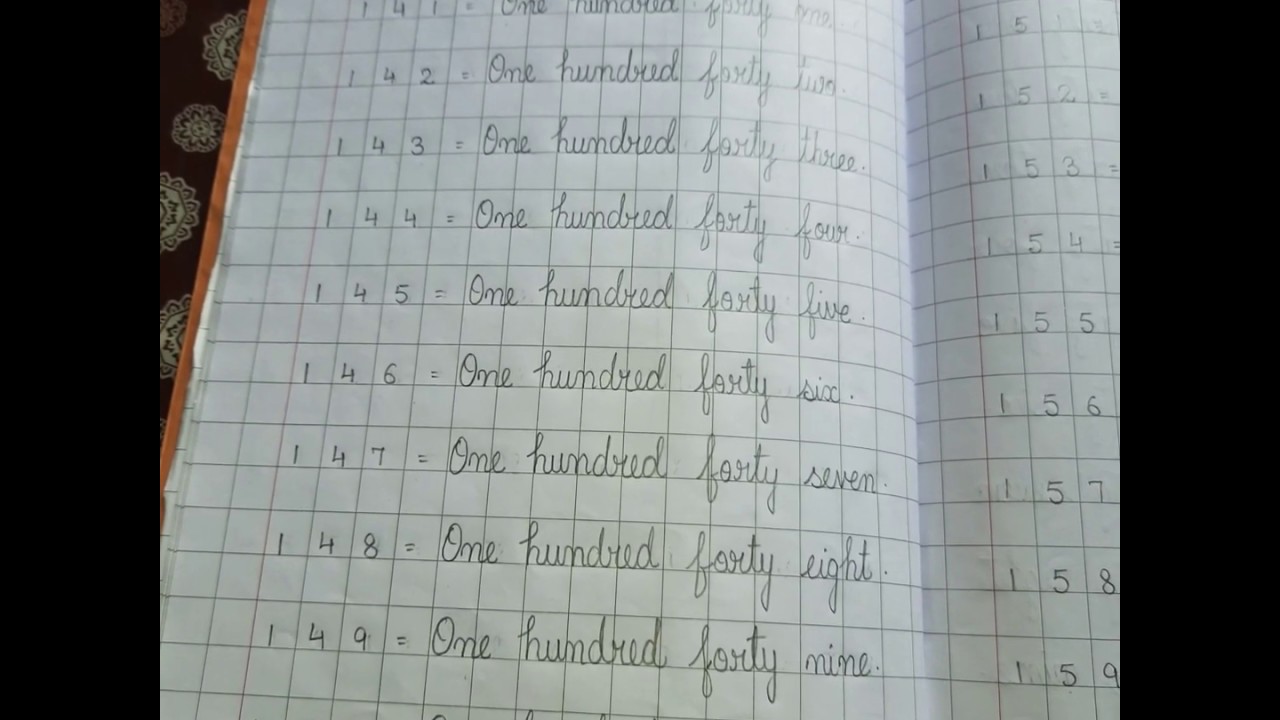 1 4 1 = One hundred forty one.
1 4 2 = One hundred forty two.
1 4 3 = One hundred forty three.
1 4 4 = One hundred forty four.
1 4 5 = One hundred forty five.
1 4 6 = One hundred forty six.
1 4 7 = One hundred forty seven.
1 4 8 = One hundred forty eight.
1 4 9 = One hundred forty nine.
1 5 1 =
1 5 2 =
1 5 3 =
1 5 4 =
1 5 5
1 5 6
1 5 7
1 5 8
1 5 9